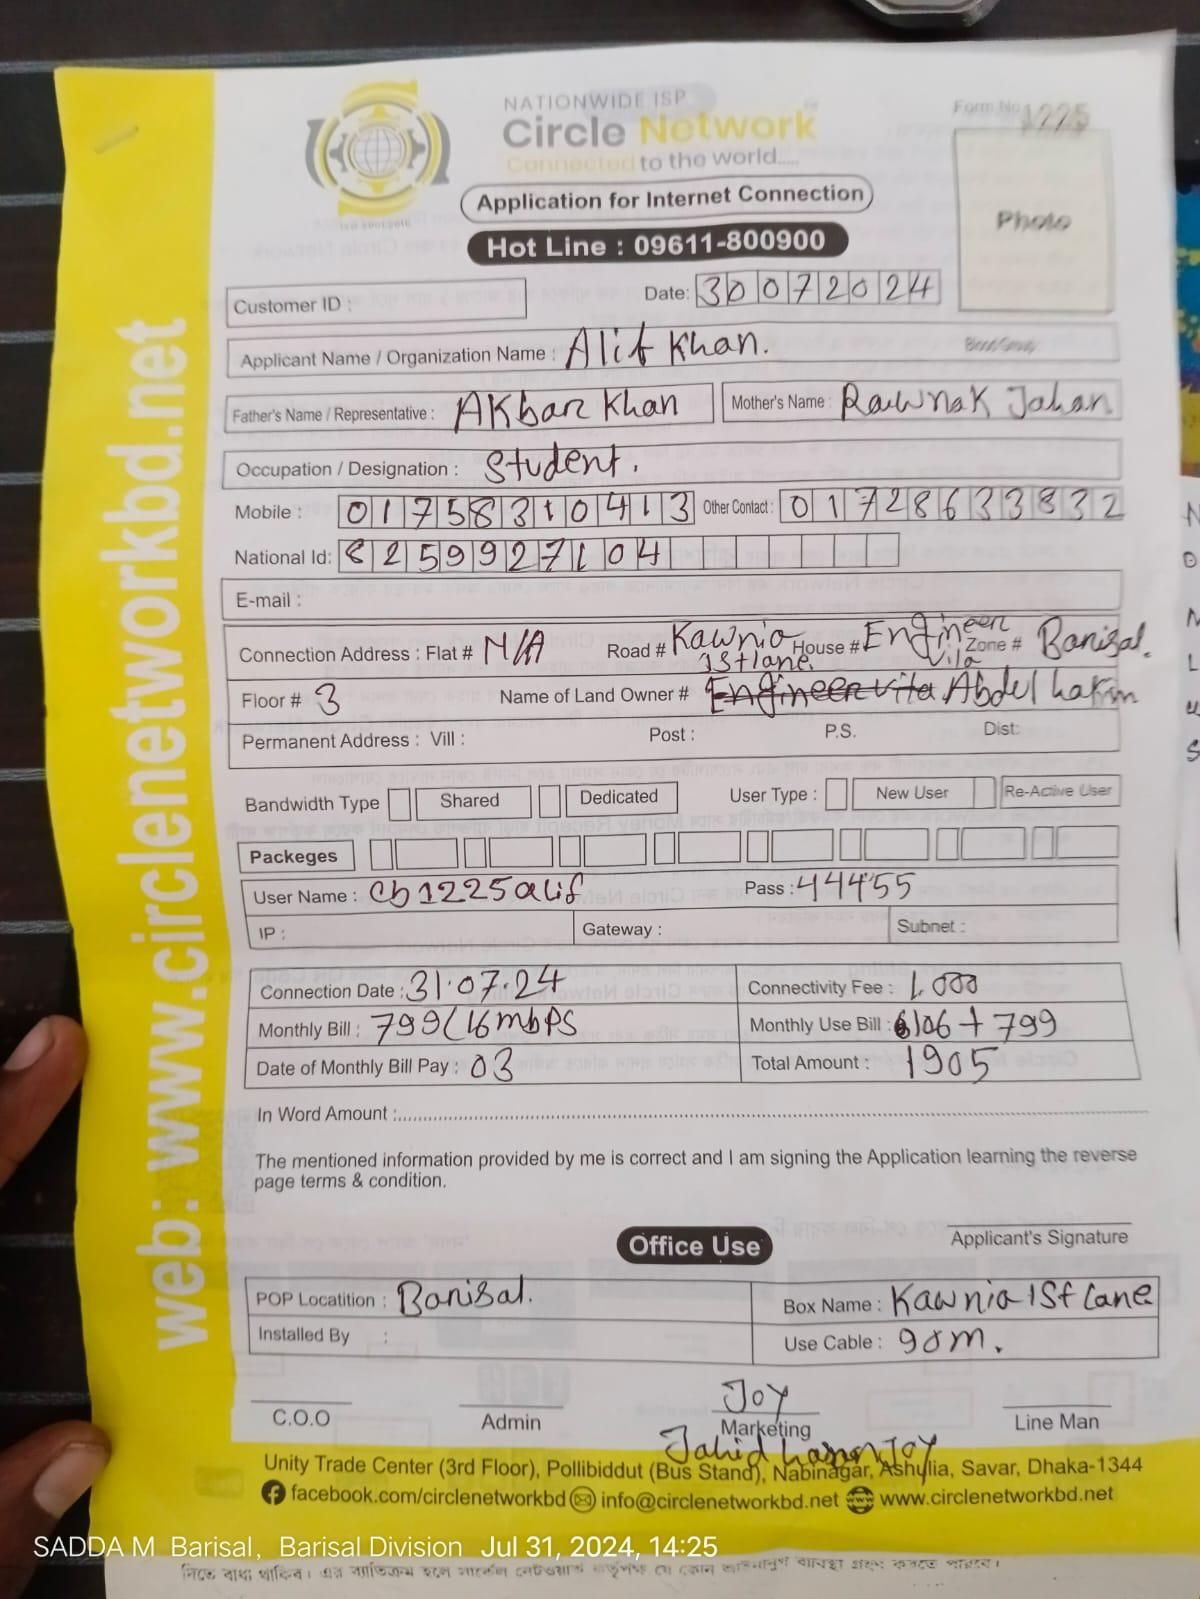 NATIONWIDE ISP
Circle Network
Connected to the world.....
Form No 1225
Photo
Application for Internet Connection
Hot Line : 09611-800900
Customer ID :
Date: 30072024
Applicant Name / Organization Name : Alif Khan.
Blood Group
Father's Name / Representative : AKbar Khan Mother's Name : Rawnak Jahan
Occupation / Designation : Student.
Mobile : 01758310413 Other Contact : 01728633832
National Id: 8259927104
E-mail :
Connection Address : Flat # N/A Road # Kawnia 1st lane. House # Engineer Vila Zone # Barisal.
Floor # 3 Name of Land Owner # Engineer vila Abdel hakim
Permanent Address : Vill : Post : P.S. Dist:
Bandwidth Type Shared Dedicated User Type : New User Re-Active User
Packeges
User Name : cb1225alif Pass : 44455
IP : Gateway : Subnet :
Connection Date : 31.07.24 Connectivity Fee : 1,000
Monthly Bill : 799(16mbps Monthly Use Bill : 106 + 799
Date of Monthly Bill Pay : 03 Total Amount : 1905
In Word Amount :
The mentioned information provided by me is correct and I am signing the Application learning the reverse
page terms & condition.
Applicant's Signature
Office Use
POP Locatition : Barisal. Box Name : Kawnia 1St Lane
Installed By : Use Cable : 90m.
JOY
C.O.O Admin Marketing Line Man
Jahid hasan JOY
Unity Trade Center (3rd Floor), Pollibiddut (Bus Stand), Nabinagar, Ashylia, Savar, Dhaka-1344
facebook.com/circlenetworkbd info@circlenetworkbd.net www.circlenetworkbd.net
web: www.circlenetworkbd.net
SADDA M Barisal, Barisal Division Jul 31, 2024, 14:25